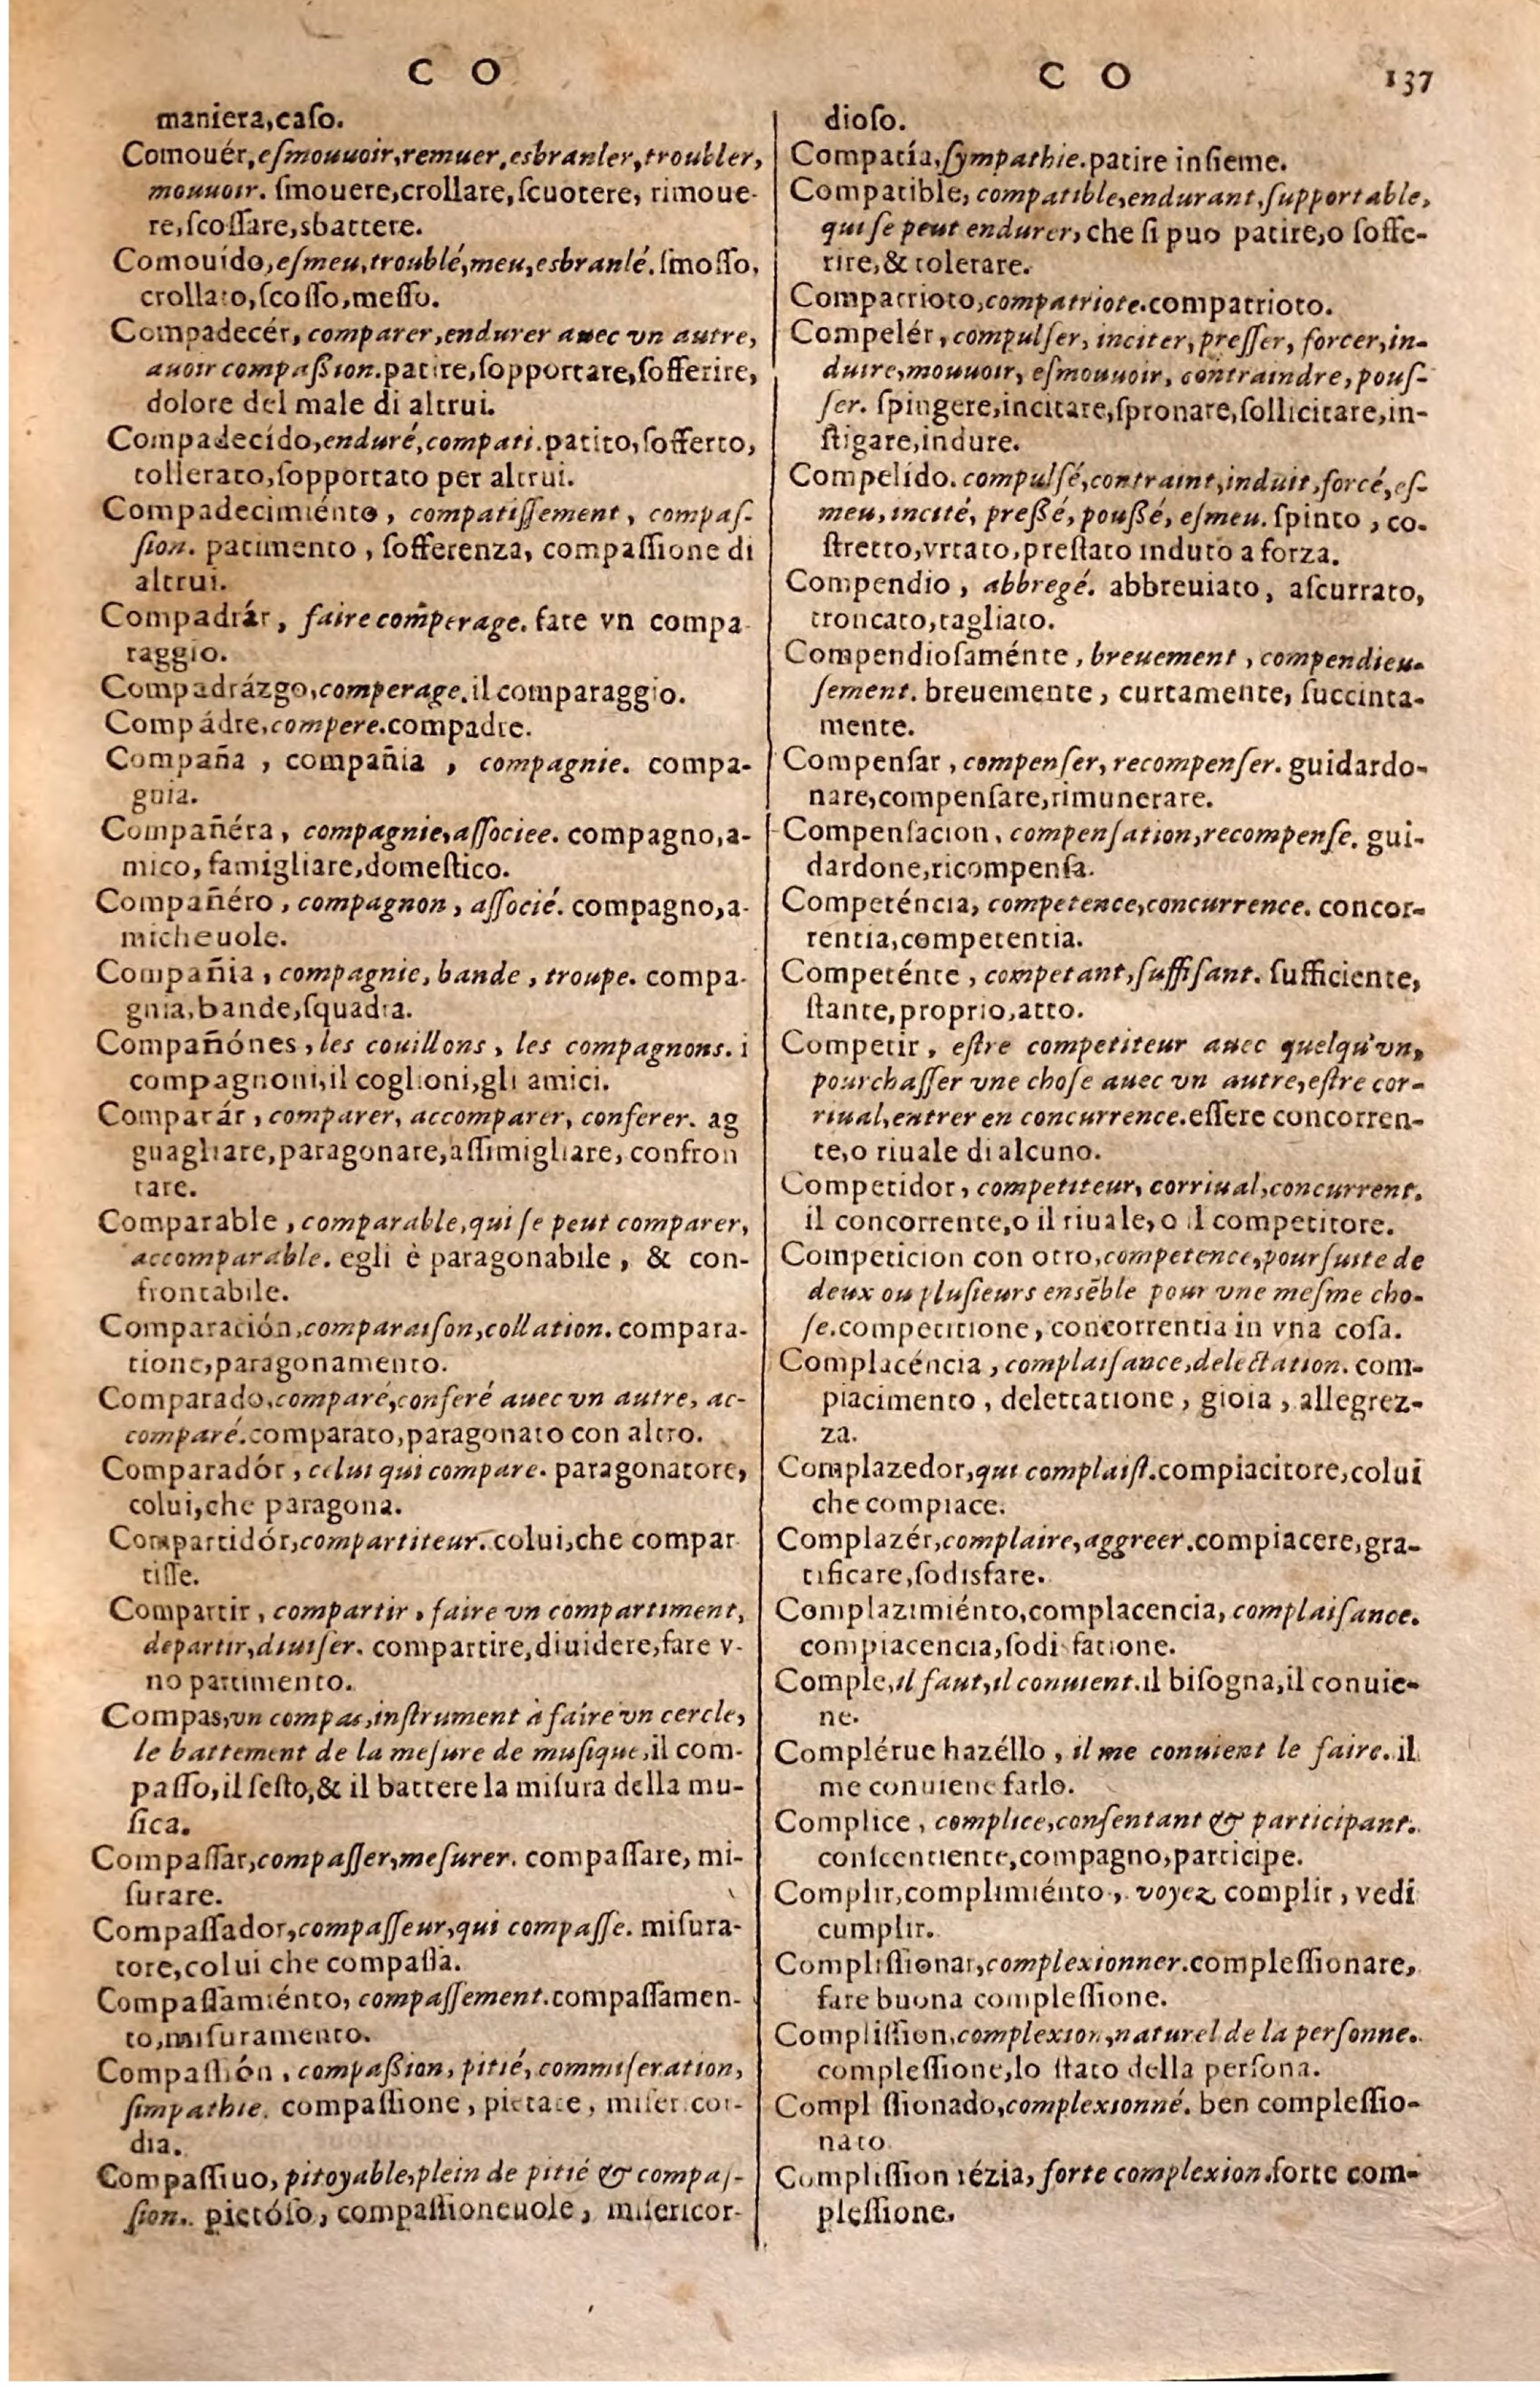 C O
maniera,caſo.
Comouér,eſmouuoir,remuer,esbranler,troubler,
mouuoir. ſmouere,crollare,ſcuotere, rimoue-
re,ſcoſſare,sbattere.
Comouido,eſmeu,troublé,meu,esbranlé.ſmoſſo,
crollato,ſcoſſo,meſſo.
Compadecér, comparer,endurer auec vn autre,
auoir compaßion.patire,ſopportare,ſofferire,
dolore del male di altrui.
Compadecído,enduré,compati.patito,ſofferto,
tollerato,ſopportato per altrui.
Compadecimiénto, compatiſſement, compaſ-
ſion. patimento, ſofferenza, compaſſione di
altrui.
Compadrár, faire comperage. fate vn compa
raggio.
Compadrázgo,comperage.il comparaggio.
Compádre,compere.compadre.
Compaña, compañia, compagnie. compa-
gnia.
Compañéra, compagnie,aſſociee. compagno,a-
mico, famigliare,domeſtico.
Compañéro, compagnon, aſſocié. compagno,a-
micheuole.
Compañia, compagnie, bande, troupe. compa-
gnia,bande,ſquadra.
Compañónes, les couillons, les compagnons. i
compagnoni,il coglioni,gli amici.
Comparár, comparer, accomparer, conferer. ag
guagliare,paragonare,aſſimigliare, confron
tare.
Comparable, comparable,qui ſe peut comparer,
accomparable. egli è paragonabile, & con-
frontabile.
Comparación,comparaiſon,collation. compara-
tione,paragonamento.
Comparado,comparé,conferé auec vn autre, ac-
comparé.comparato,paragonato con altro.
Comparadór, celui qui compare. paragonatore,
colui,che paragona.
Compartidór,compartiteur. colui,che compar
tiſſe.
Compartir, compartir, faire vn compartiment,
departir,diuiſer. compartire,diuidere,fare v-
no partimento.
Compas,vn compas,inſtrument à faire vn cercle,
le battement de la meſure de muſique,il com-
paſſo,il ſeſto,& il battere la miſura della mu-
ſica.
Compaſſar,compaſſer,meſurer. compaſſare, mi-
ſurare.
Compaſſador,compaſſeur,qui compaſſe. miſura-
tore,colui che compaſſa.
Compaſſamiénto, compaſſement.compaſſamen-
to,miſuramento.
Compaſſión, compaßion, pitié, commiſeration,
ſimpathie. compaſſione, pietate, miſericor-
dia.
Compaſſiuo, pitoyable,plein de pitié & compaſ-
ſion. pietóſo, compaſſioneuole, miſericor-
C O 137
dioſo.
Compatía,ſympathie.patire inſieme.
Compatible, compatible,endurant,ſupportable,
qui ſe peut endurer, che ſi puo patire,o ſoffe-
rire,& tolerare.
Compatrioto,compatriote.compatrioto.
Compelér, compulſer, inciter, preſſer, forcer,in-
duire,mouuoir, eſmouuoir, contraindre, pouſ-
ſer. ſpingere,incitare,ſpronare,ſollicitare,in-
ſtigare,indure.
Compelído. compulſé,contraint,induit,forcé,eſ-
meu, incité, preßé, poußé, eſmeu. ſpinto, co-
ſtretto,vrtato,preſtato induto a forza.
Compendio, abbregé. abbreuiato, aſcurrato,
troncato,tagliato.
Compendioſaménte, breuement, compendieu-
ſement. breuemente, curtamente, ſuccinta-
mente.
Compenſar, compenſer, recompenſer. guidardo-
nare,compenſare,rimunerare.
Compenſacion, compenſation,recompenſe. gui-
dardone,ricompenſa.
Competéncia, competence,concurrence. concor-
rentia,competentia.
Competénte, competant,ſuffiſant. ſufficiente,
ſtante,proprio,atto.
Competir, eſtre competiteur auec quelqu'vn,
pourchaſſer vne choſe auec vn autre,eſtre cor-
riual,entrer en concurrence.eſſere concorren-
te,o riuale di alcuno.
Competidor, competiteur, corriual,concurrent.
il concorrente,o il riuale,o il competitore.
Competicion con otro,competence,pourſuite de
deux ou pluſieurs ensēble pour vne meſme cho-
ſe.competitione, concorrentia in vna coſa.
Complacéncia, complaiſance,delectation. com-
piacimento, delettatione, gioia, allegrez-
za.
Complazedor,qui complaiſt.compiacitore,colui
che compiace.
Complazér,complaire,aggreer.compiacere,gra-
tificare,ſodisfare.
Complazimiénto,complacencia, complaiſance.
compiacencia,ſodisfatione.
Comple,il faut,il conuient.il biſogna,il conuie-
ne.
Complérue hazéllo, il me conuient le faire. il
me conuiene farlo.
Complice, complice,conſentant & participant.
conſcentiente,compagno,participe.
Complir,complimiénto, voyez complir, vedi
cumplir.
Compliſſionar,complexionner.compleſſionare,
fare buona compleſſione.
Compliſſion,complexion,naturel de la perſonne.
compleſſione,lo ſtato della perſona.
Compl ſſionado,complexionné. ben compleſſio-
nato
Compliſſion rézia, forte complexion.forte com-
pleſſione.